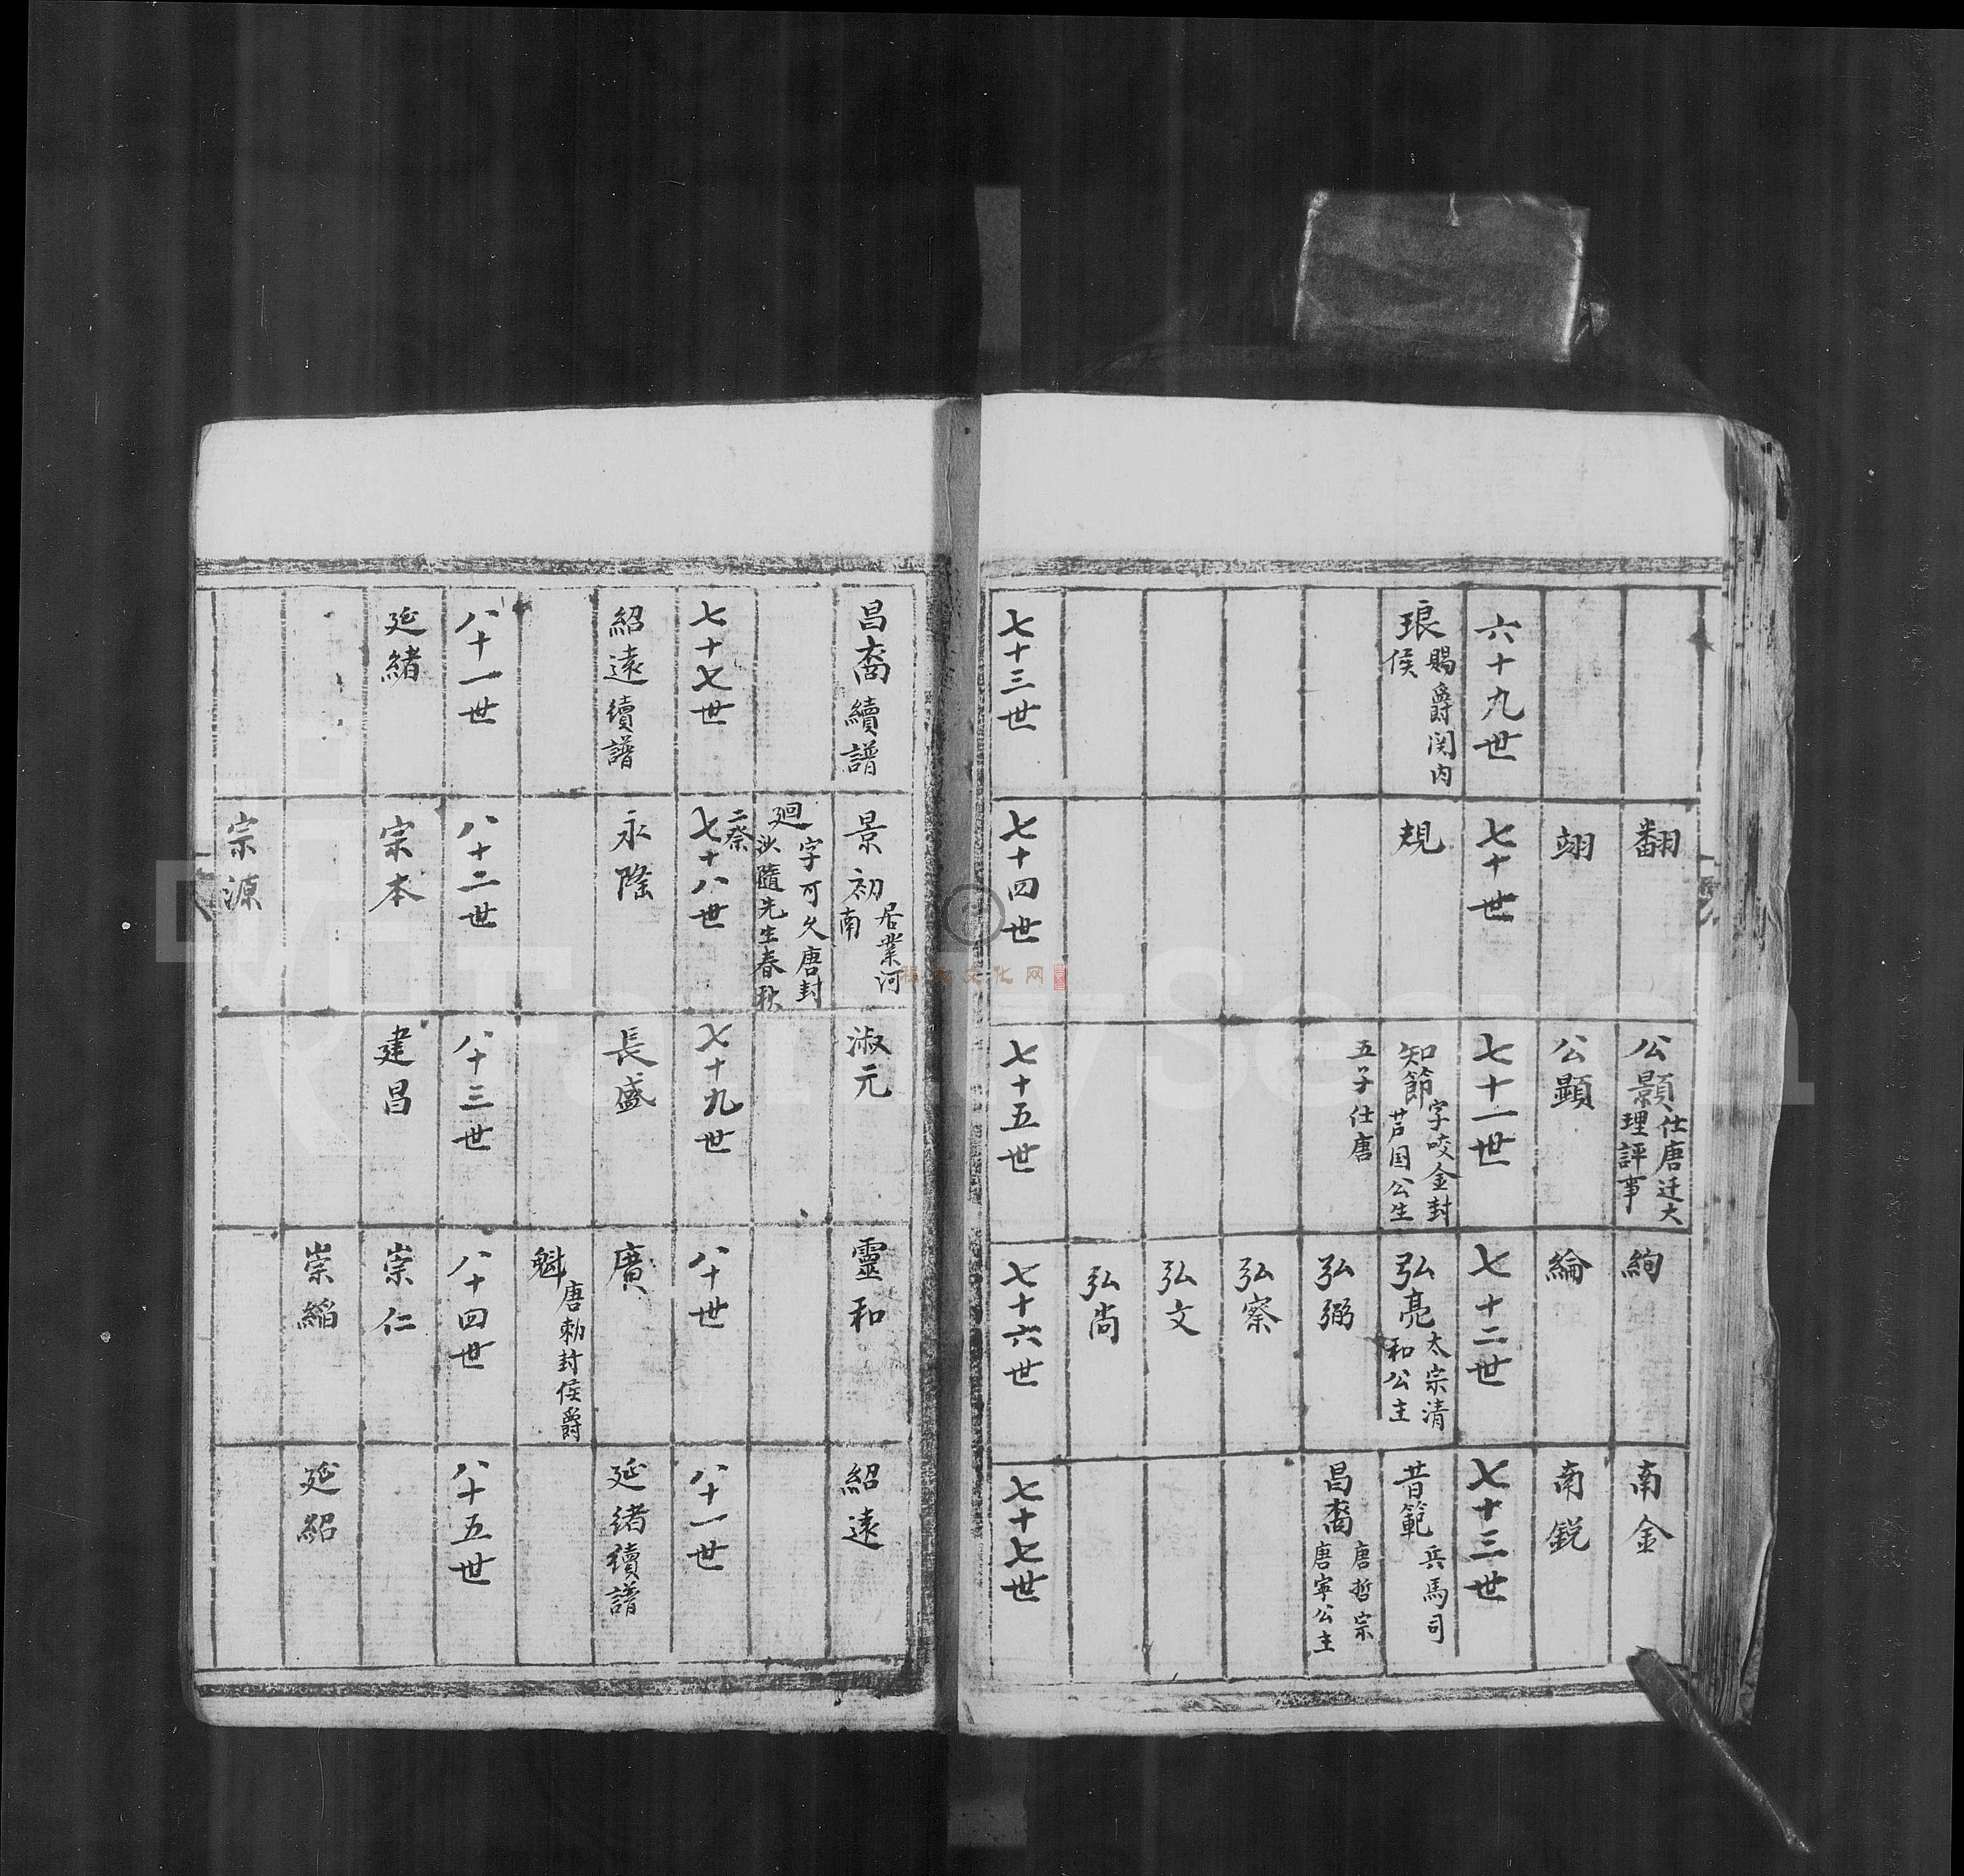 翻
公顥仕唐迁大
理評事
絢
南金
翊
公顯
綸
南銳
六十九世
七十世
七十一世
七十二世
七十三世
琅賜爵関内
侯
規
知節字咬金封
芦国公生
弘亮太宗清
和公主
昔範兵馬司
五子仕唐
弘弼
昌裔唐哲宗
唐寧公主
弘察
弘文
弘尚
七十三世
七十四世
七十五世
七十六世
七十七世
昌裔續譜
景初居業河
南
淑元
靈和
紹遠
迴字可久唐封
沙隨先生春秋
二祭
七十七世
七十八世
七十九世
八十世
八十一世
紹遠續譜
永隆
長盛
廣
延绪續譜
魁唐勅封侯爵
八十一世
八十二世
八十三世
八十四世
八十五世
延緒
宗本
建昌
崇仁
崇縚
延紹
宗源
FamilySearch
程氏文化网